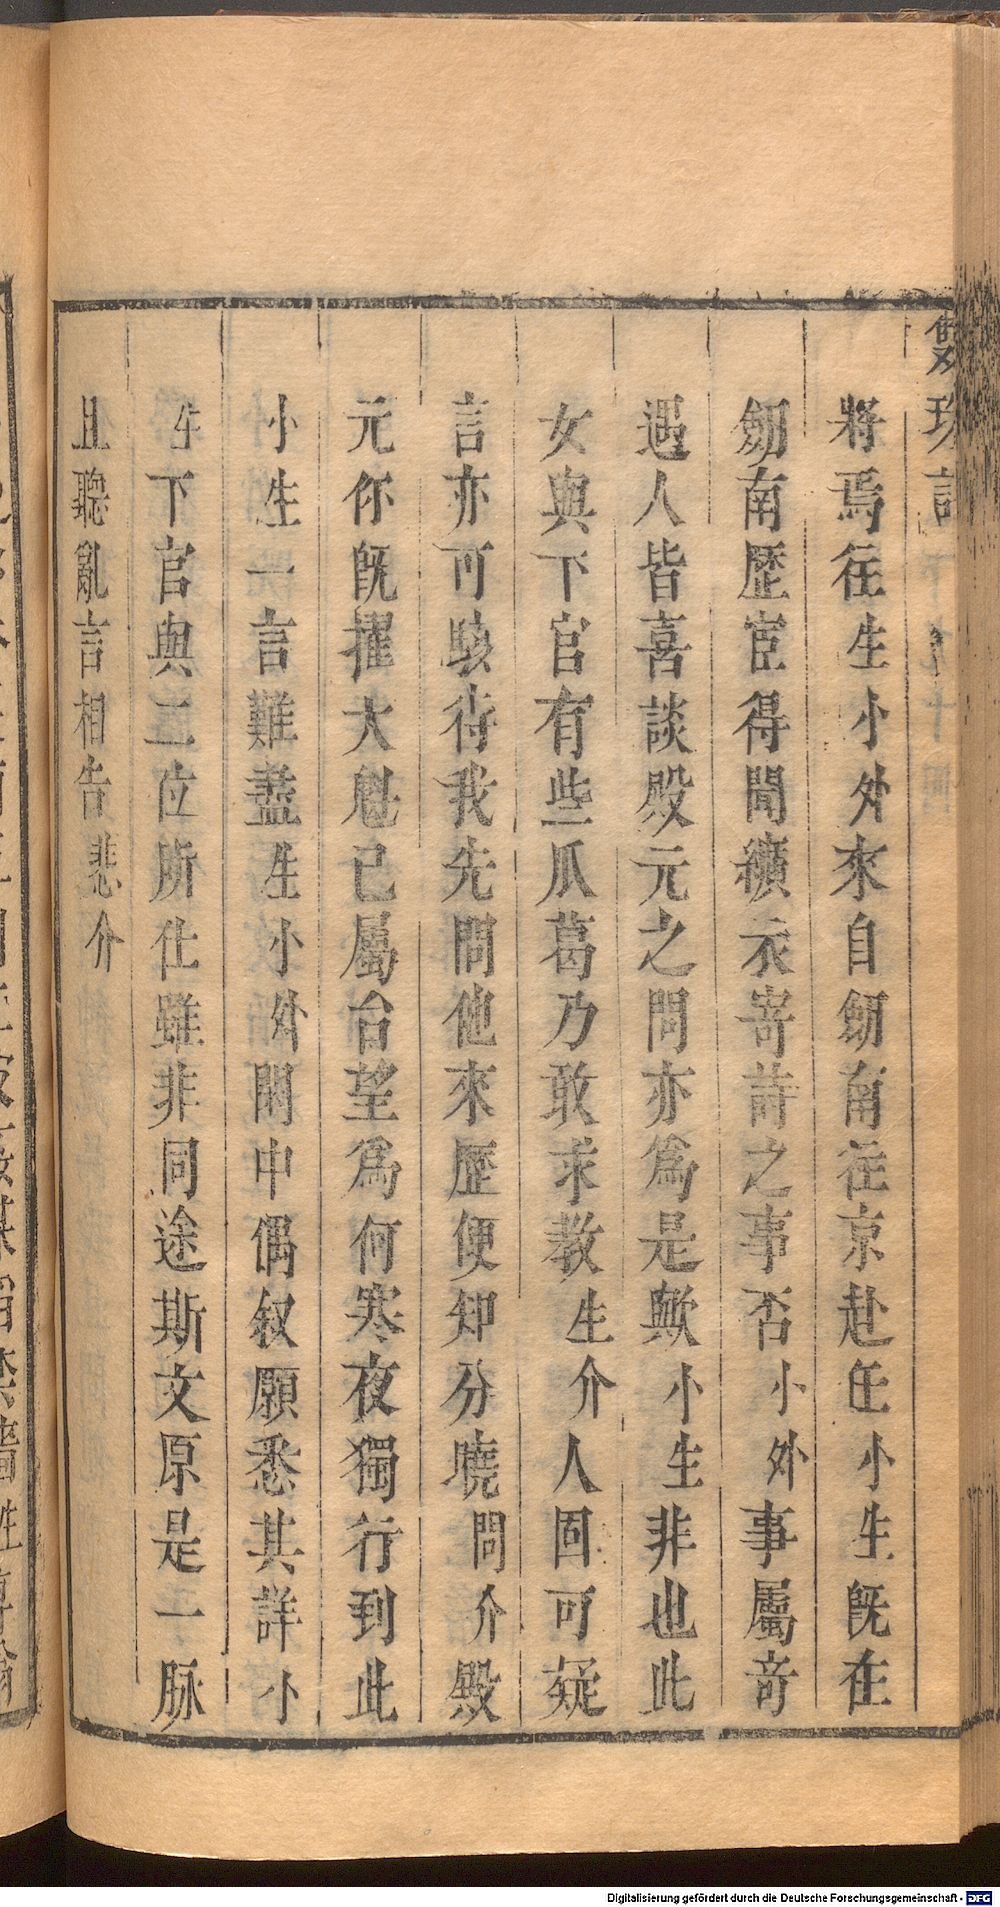 雙珠記
將焉往生小外來自劒南往京赴任小生既在
劒南歷宦得聞纊衣寄詩之事否小外事屬奇
遇人皆喜談殿元之問亦爲是歟小生非也此
女與下官有些瓜葛乃敢求教生介人固可疑
言亦可駭待我先問他來歷便知分曉問介殿
元你既擢大魁已屬台望爲何寒夜獨行到此
小生一言難盡生小外閒中偶叙願悉其詳小
生下官與二位所仕雖非同途斯文原是一脉
且聽亂言相告悲介
Digitalisierung gefördert durch die Deutsche Forschungsgemeinschaft - DFG